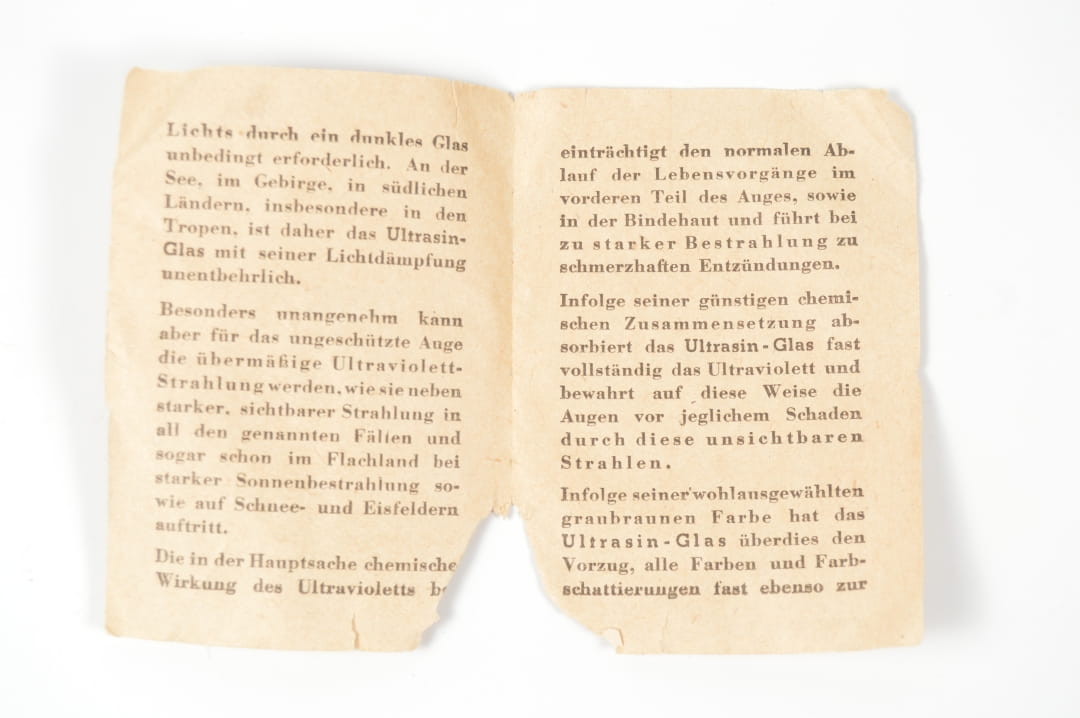 Lichts durch ein dunkles Glas
unbedingt erforderlich. An der
See, im Gebirge, in südlichen
Ländern, insbesondere in den
Tropen, ist daher das Ultrasin-
Glas mit seiner Lichtdämpfung
unentbehrlich.
Besonders unangenehm kann
aber für das ungeschützte Auge
die übermäßige Ultraviolett-
Strahlung werden, wie sie neben
starker, sichtbarer Strahlung in
all den genannten Fällen und
sogar schon im Flachland bei
starker Sonnenbestrahlung so-
wie auf Schnee- und Eisfeldern
auftritt.
Die in der Hauptsache chemische
Wirkung des Ultravioletts b
einträchtigt den normalen Ab-
lauf der Lebensvorgänge im
vorderen Teil des Auges, sowie
in der Bindehaut und führt bei
zu starker Bestrahlung zu
schmerzhaften Entzündungen.
Infolge seiner günstigen chemi-
schen Zusammensetzung ab-
sorbiert das Ultrasin-Glas fast
vollständig das Ultraviolett und
bewahrt auf diese Weise die
Augen vor jeglichem Schaden
durch diese unsichtbaren
Strahlen.
Infolge seiner wohlausgewählten
graubraunen Farbe hat das
Ultrasin-Glas überdies den
Vorzug, alle Farben und Farb-
schattierungen fast ebenso zur